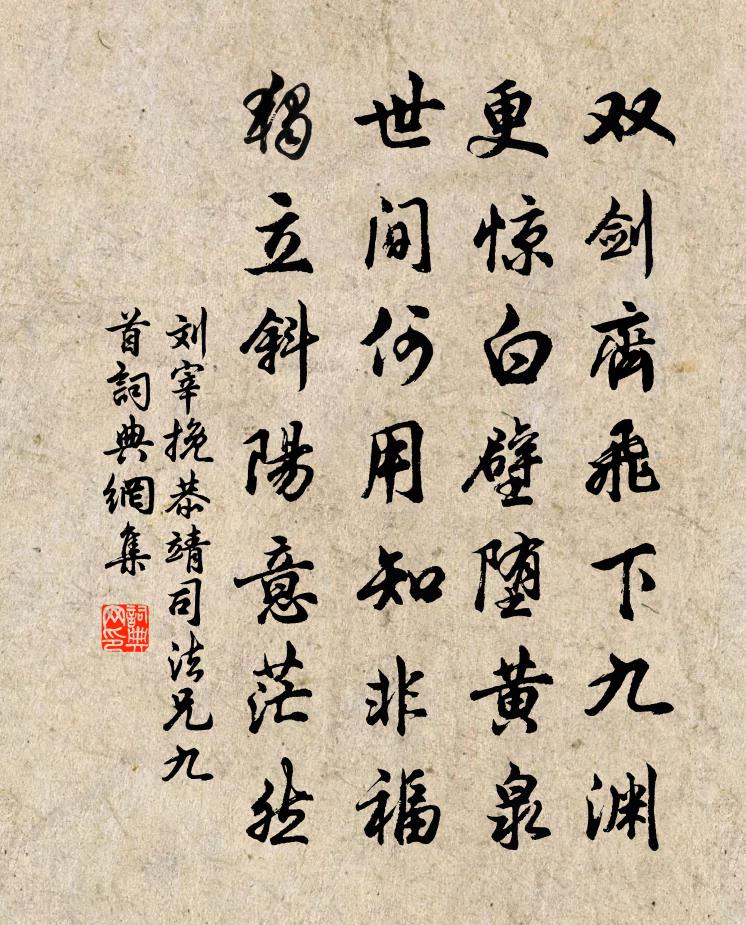 双剑齊飛下九渊
更惊白璧堕黄泉
世间何用知非福
獨立斜陽意茫然
刘宰挽恭靖司法兄九
首詞典網集
詞典网印